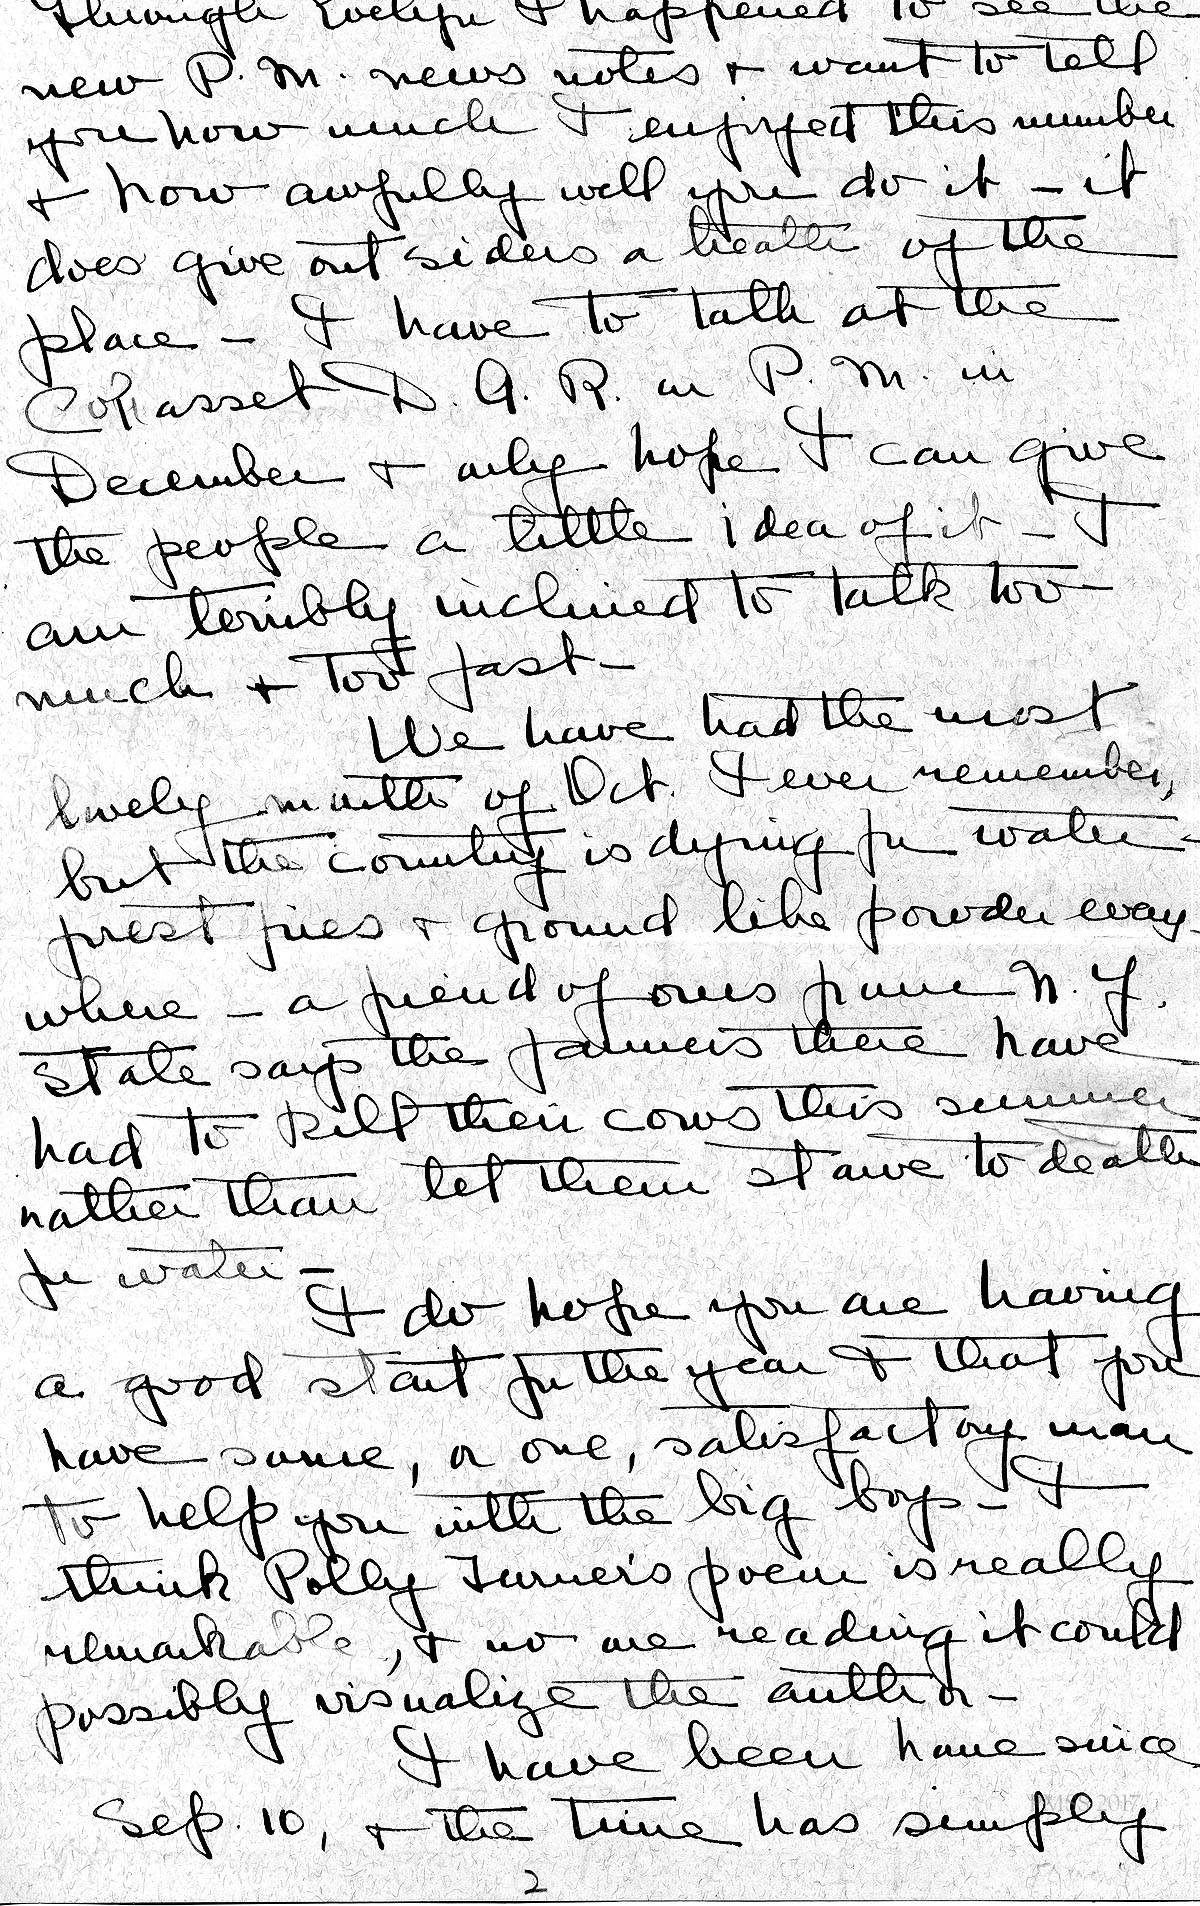 through Evelyn I happened to see the
new P. M. news notes & want to tell
you how much I enjoyed this number
& how awfully well you do it - it
does give outsiders a breath of the
place - I have to talk at the
Cohasset D. A. R. on P. M. in
December & only hope I can give
the people a little idea of it - I
am terribly inclined to talk too
much & too fast -
We have had the most
lovely month of Oct. I ever remember,
but the country is dying for water -
forest fires & ground like powder every-
where - a friend of ours from N. Y.
state says the farmers there have
had to kill their cows this summer
rather than let them starve to death
for water -
I do hope you are having
a good start for the year & that you
have some, or one, satisfactory man
to help you with the big boys - I
think Polly Turner's poem is really
remarkable, & no one reading it could
possibly visualize the author -
I have been home since
Sep. 10, & the time has simply
2